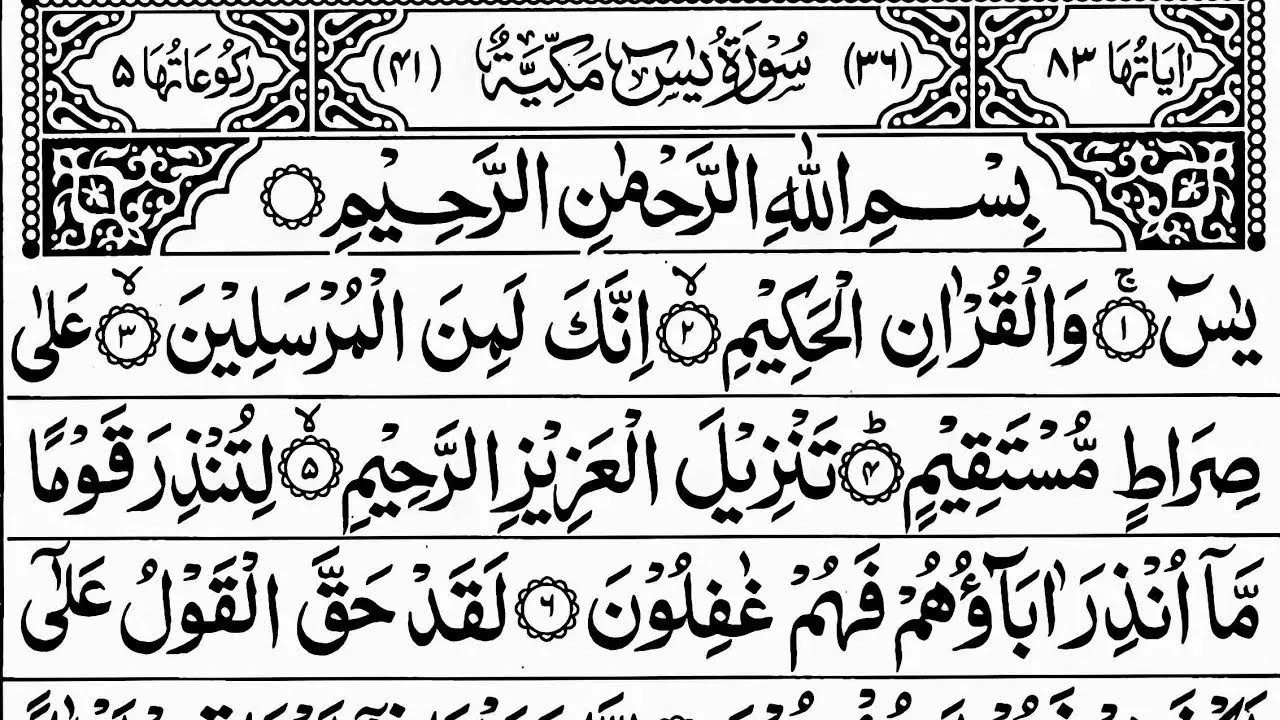 اٰيَاتُهَا ٨٣ (٣٦) سُوْرَةُ يٰسٓ مَكِّيَّةٌ (٤١) رَكُوْعَاتُهَا ۵
بِسْمِ اللّٰهِ الرَّحْمٰنِ الرَّحِيْمِ
يٰسٓ ۚ﴿١﴾ وَالْقُرْاٰنِ الْحَكِيْمِ ۙ﴿٢﴾ اِنَّكَ لَمِنَ الْمُرْسَلِيْنَ ۙ﴿٣﴾ عَلٰى
صِرَاطٍ مُّسْتَقِيْمٍ ؕ﴿۴﴾ تَنْزِيْلَ الْعَزِيْزِ الرَّحِيْمِ ۙ﴿۵﴾ لِتُنْذِرَ قَوْمًا
مَّاۤ اُنْذِرَ اٰبَآؤُهُمْ فَهُمْ غٰفِلُوْنَ ﴿٦﴾ لَقَدْ حَقَّ الْقَوْلُ عَلٰۤى